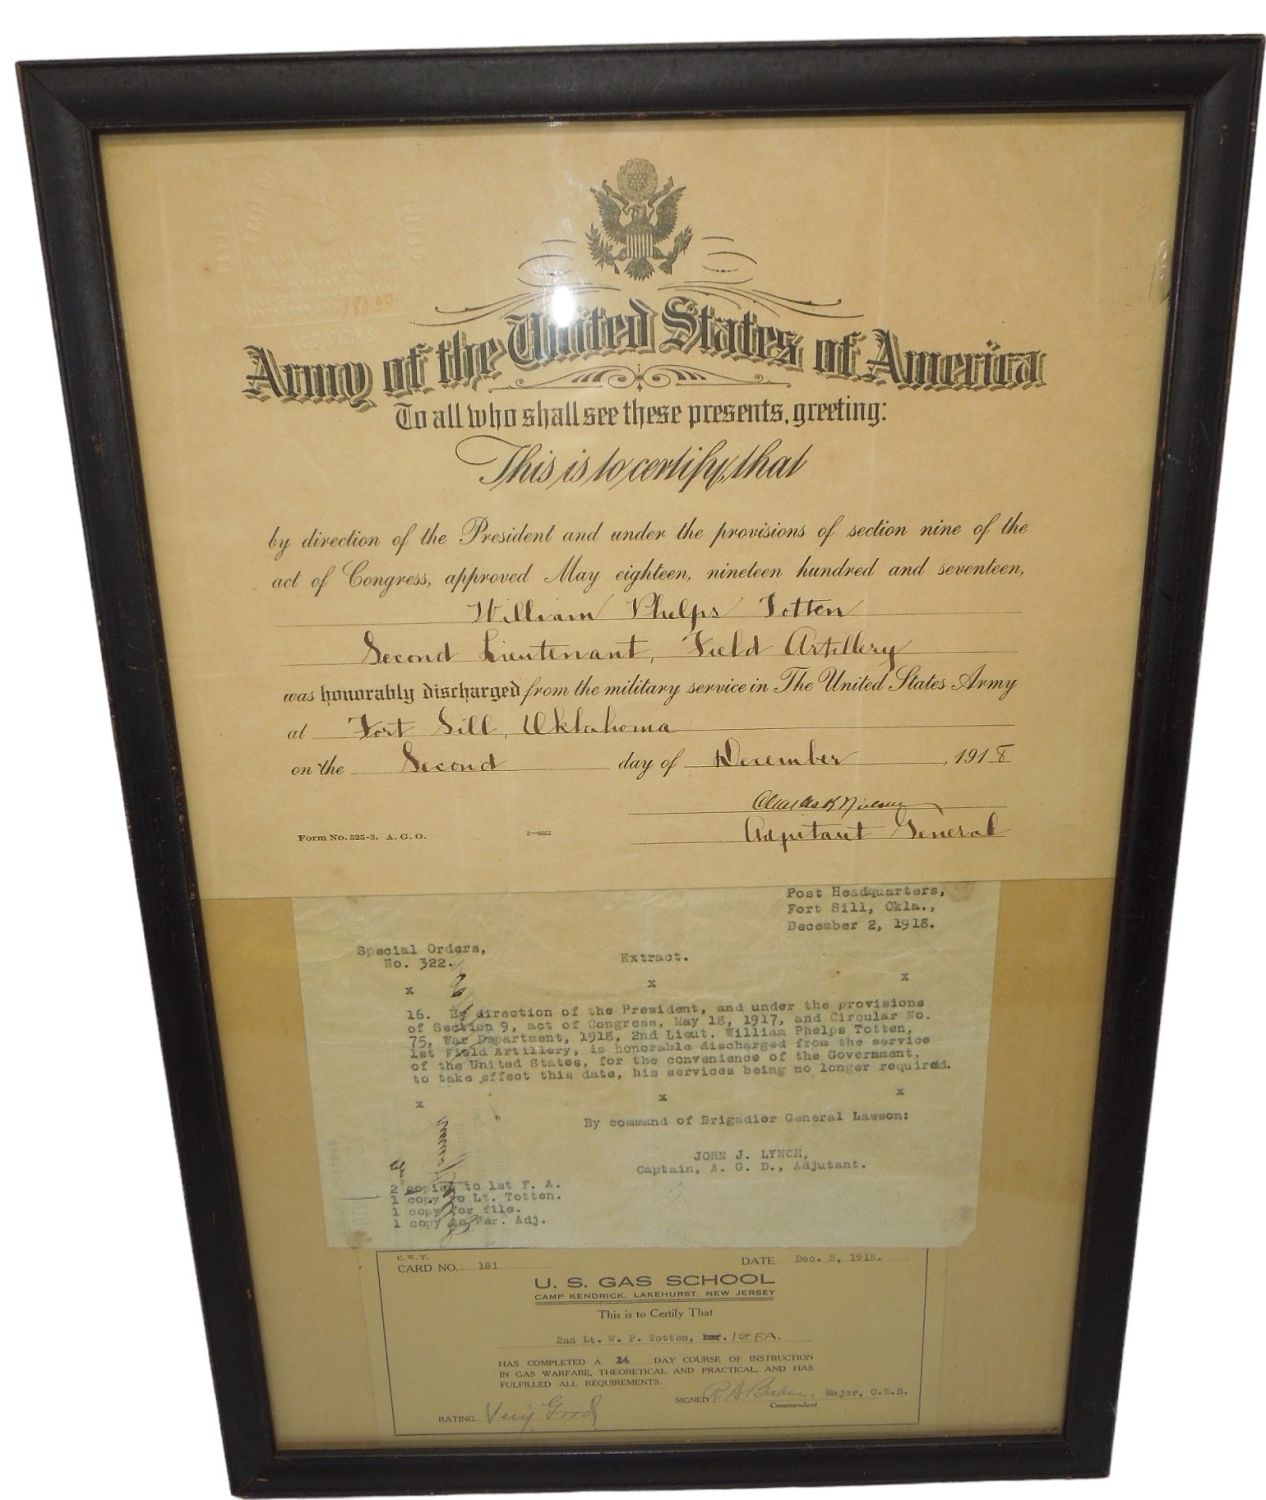 Army of the United States of America
To all who shall see these presents, greeting:
This is to certify, that
by direction of the President and under the provisions of section nine of the
act of Congress, approved May eighteen, nineteen hundred and seventeen,
William Phelps Totten
Second Lieutenant, Field Artillery
was honorably discharged from the military service in The United States Army
at Fort Sill, Oklahoma
on the Second day of December, 1918
Adjutant General
Form No. 525-3. A. G. O.
Post Headquarters,
Fort Sill, Okla.,
December 2, 1918.
Special Orders,
No. 322.
Extract.
x x x
16. By direction of the President, and under the provisions
of Section 9, act of Congress, May 18, 1917, and Circular No.
75, War Department, 1918, 2nd Lieut. William Phelps Totten,
1st Field Artillery, is honorable discharged from the service
of the United States, for the convenience of the Government,
to take effect this date, his services being no longer required.
x x x
By command of Brigadier General Lawson:
JOHN J. LYNCH,
Captain, A. G. D., Adjutant.
2 copies to 1st F. A.
1 copy to Lt. Totten.
1 copy for file.
1 copy to Per. Adj.
C. W. T.
CARD NO. 181
DATE Dec. 5, 1918.
U. S. GAS SCHOOL
CAMP KENDRICK, LAKEHURST, NEW JERSEY
This is to Certify That
2nd Lt. W. P. Totten, 1st FA.
HAS COMPLETED A 24 DAY COURSE OF INSTRUCTION
IN GAS WARFARE, THEORETICAL AND PRACTICAL, AND HAS
FULFILLED ALL REQUIREMENTS.
SIGNED R A Baker Major, C.E.S.
Commandant
RATING Very Good